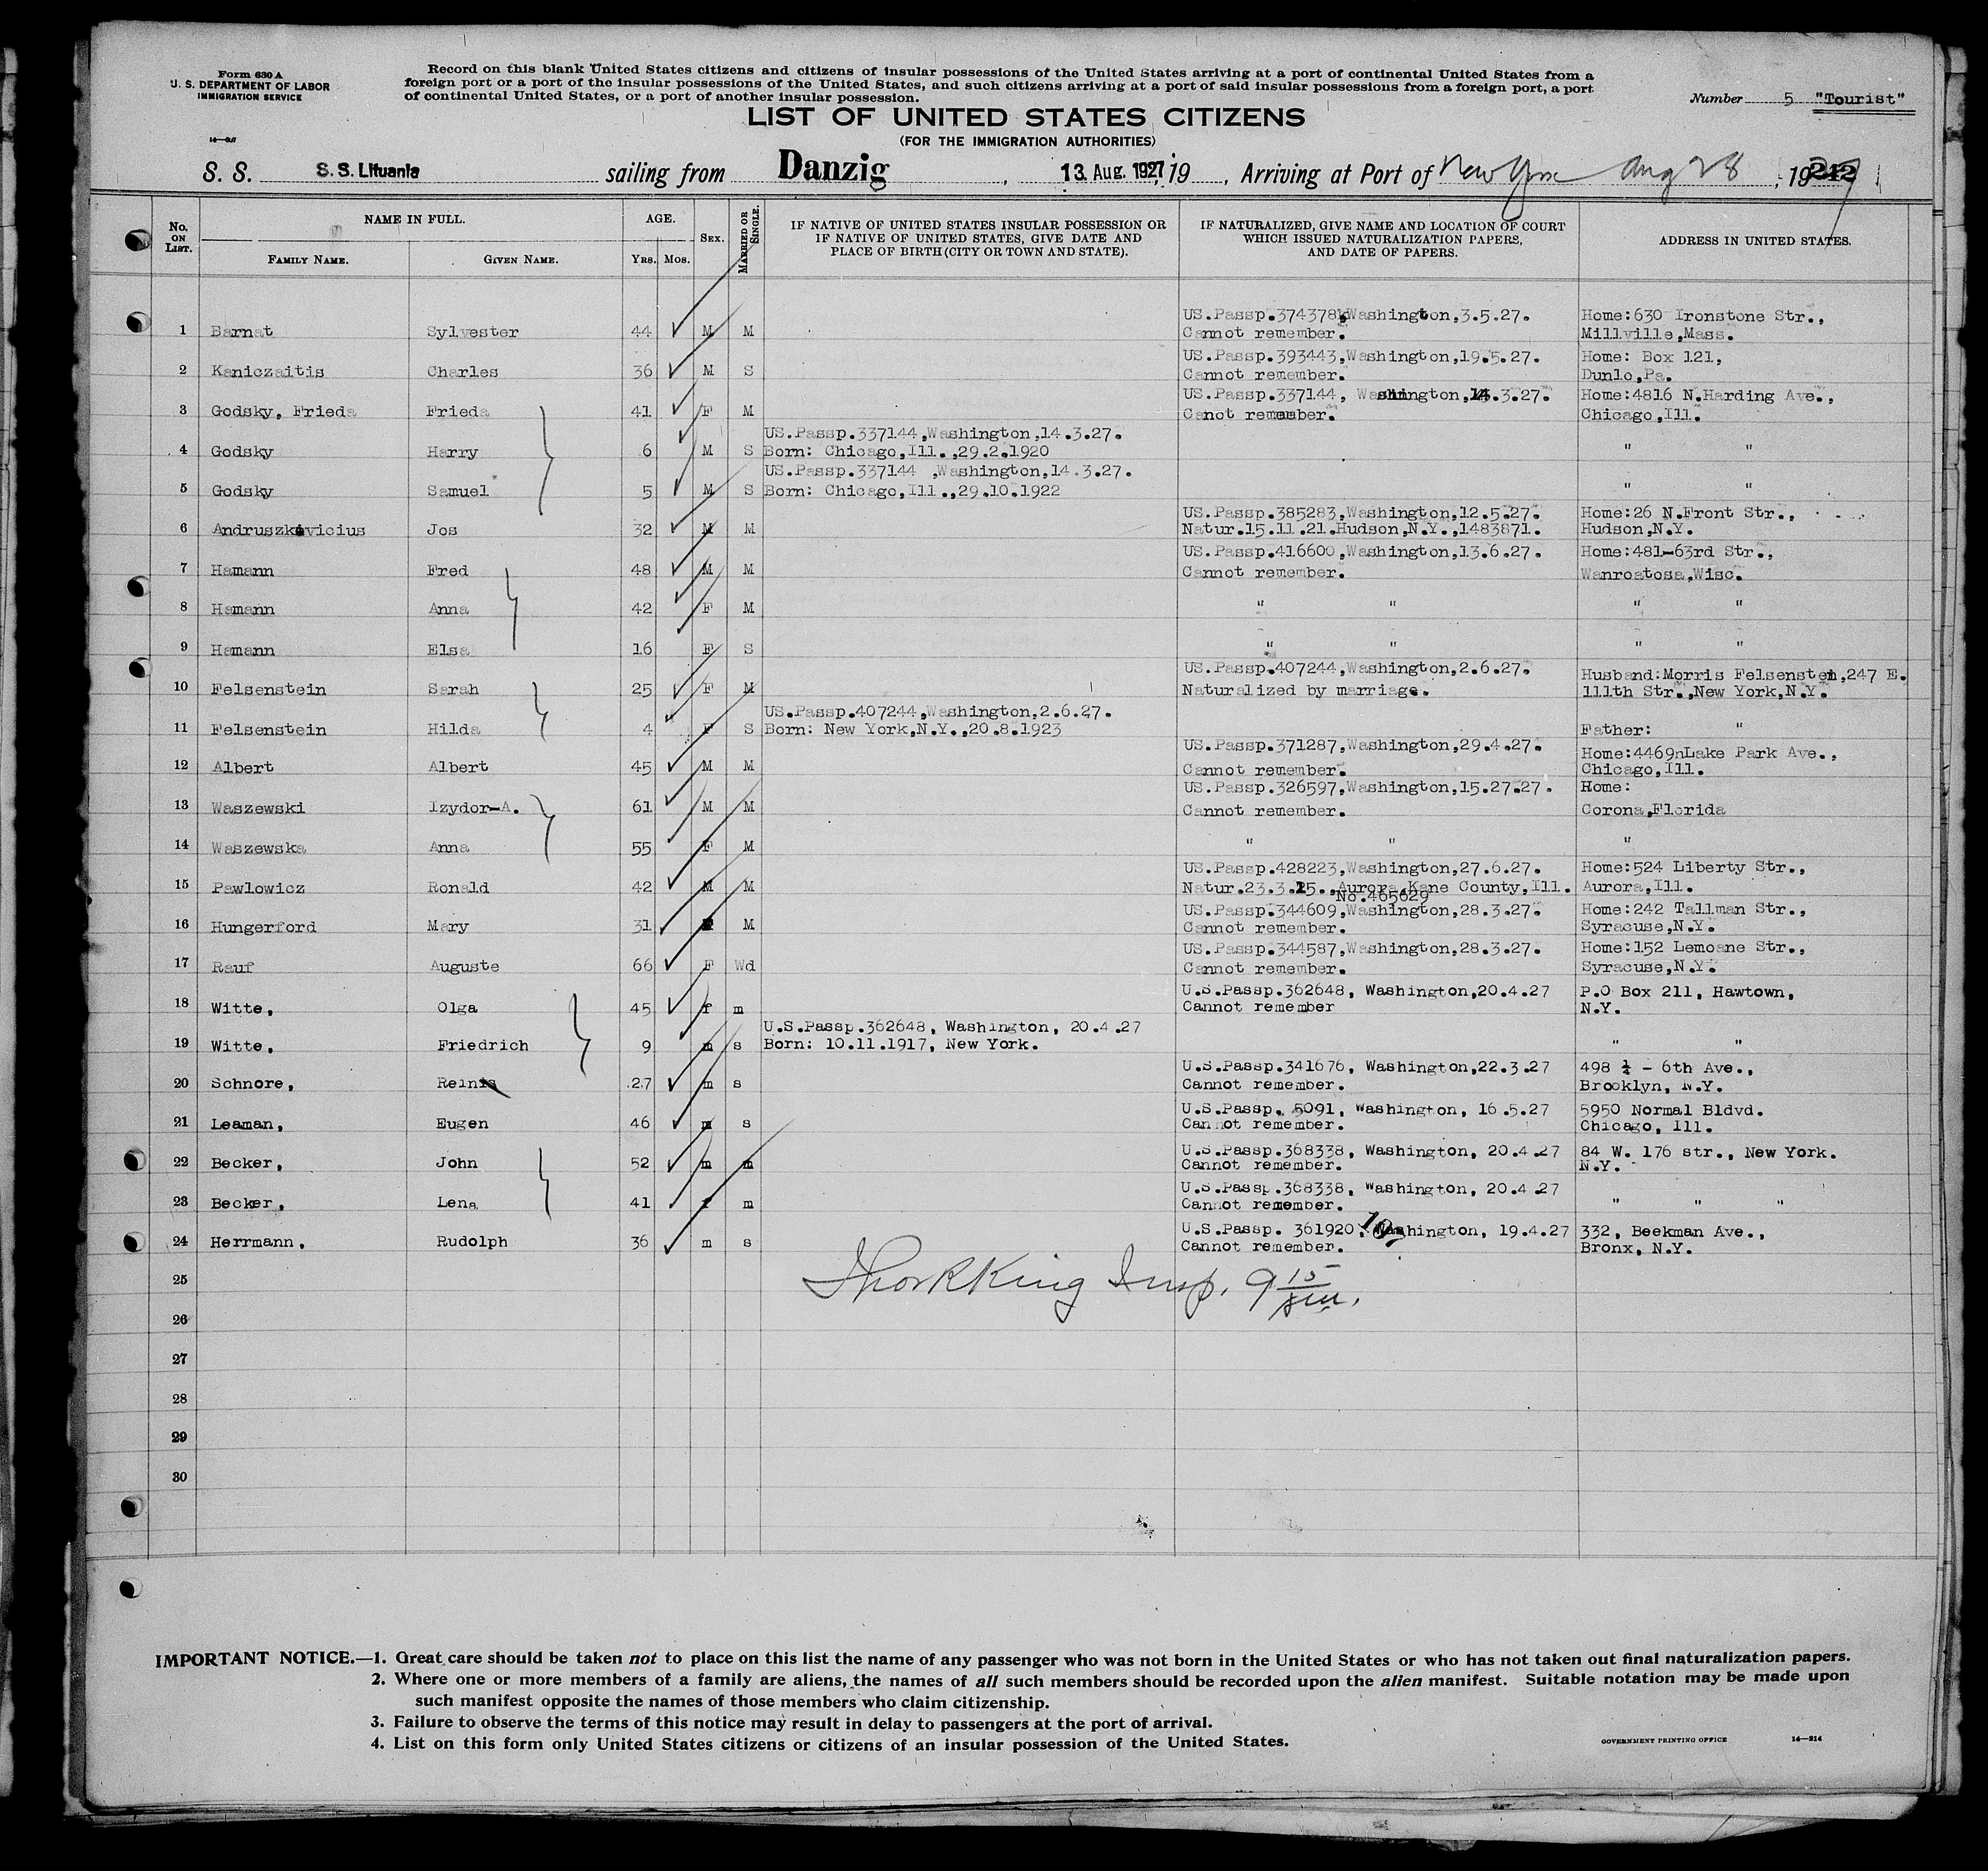 Form 630 A
U. S. DEPARTMENT OF LABOR
IMMIGRATION SERVICE
Record on this blank United States citizens and citizens of insular possessions of the United States arriving at a port of continental United States from a
foreign port or a port of the insular possessions of the United States, and such citizens arriving at a port of said insular possessions from a foreign port, a port
of continental United States, or a port of another insular possession.
Number 5 "Tourist"
LIST OF UNITED STATES CITIZENS
(FOR THE IMMIGRATION AUTHORITIES)
S. S. S. S. Lituania sailing from Danzig, 13 Aug. 1927, 19, Arriving at Port of New York Aug 28, 1927
242
No. ON LIST. NAME IN FULL. AGE. SEX. MARRIED OR SINGLE. IF NATIVE OF UNITED STATES INSULAR POSSESSION OR IF NATIVE OF UNITED STATES, GIVE DATE AND PLACE OF BIRTH (CITY OR TOWN AND STATE). IF NATURALIZED, GIVE NAME AND LOCATION OF COURT WHICH ISSUED NATURALIZATION PAPERS, AND DATE OF PAPERS. ADDRESS IN UNITED STATES.
FAMILY NAME. GIVEN NAME. YRS. MOS.
US.Passp.374378,Washington,3.5.27. Home:630 Ironstone Str.,
1 Barnat Sylvester 44 M M Cannot remember. Millville,Mass.
US.Passp.393443,Washington,19.5.27. Home: Box 121,
2 Kaniczaitis Charles 36 M S Cannot remember. Dunlo,Pa.
US.Passp.337144, Washington,14.3.27. Home:4816 N.Harding Ave.,
3 Godsky, Frieda Frieda 41 F M Canot remember. Chicago,Ill.
US.Passp.337144,Washington,14.3.27.
4 Godsky Harry 6 M S Born: Chicago,Ill.,29.2.1920 " "
US.Passp.337144 ,Washington,14.3.27.
5 Godsky Samuel 5 M S Born: Chicago,Ill.,29.10.1922 " "
US.Passp.385283,Washington,12.5.27. Home:26 N.Front Str.,
6 Andruszkevicius Jos 32 M M Natur.15.11.21.Hudson,N.Y.,1483871. Hudson,N.Y.
US.Passp.416600,Washington,13.6.27. Home:481-63rd Str.,
7 Hamann Fred 48 M M Cannot remember. Wanroatosa,Wisc.
8 Hamann Anna 42 F M " " " "
9 Hamann Elsa 16 F S " " " "
US.Passp.407244,Washington,2.6.27. Husband:Morris Felsenstein,247 E.
10 Felsenstein Sarah 25 F M Naturalized by marriage. 111th Str.,New York,N.Y.
US.Passp.407244,Washington,2.6.27.
11 Felsenstein Hilda 4 F S Born: New York,N.Y.,20.8.1923 Father: "
US.Passp.371287,Washington,29.4.27. Home:4469nLake Park Ave.,
12 Albert Albert 45 M M Cannot remember. Chicago,Ill.
US.Passp.326597,Washington,15.27.27. Home:
13 Waszewski Izydor-A. 61 M M Cannot remember. Corona,Florida
14 Waszewska Anna 55 F M " " "
US.Passp.428223,Washington,27.6.27. Home:524 Liberty Str.,
15 Pawlowicz Ronald 42 M M Natur.23.3.25.,Aurora,Kane County,Ill. Aurora,Ill.
No.465629
US.Passp.344609,Washington,28.3.27. Home:242 Tallman Str.,
16 Hungerford Mary 31 F M Cannot remember. Syracuse,N.Y.
US.Passp.344587,Washington,28.3.27. Home:152 Lemoane Str.,
17 Rauf Auguste 66 F Wd Cannot remember. Syracuse,N.Y.
U.S.Passp.362648, Washington,20.4.27 P.O Box 211, Hawtown,
18 Witte, Olga 45 f m Cannot remember N.Y.
U.S.Passp.362648, Washington, 20.4.27
19 Witte, Friedrich 9 m s Born: 10.11.1917, New York. " "
U.S.Passp.341676, Washington,22.3.27 498 ½ - 6th Ave.,
20 Schnore, Reinis 27 m s Cannot remember. Brooklyn, N.Y.
U.S.Passp. 5091, Washington, 16.5.27 5950 Normal Bldvd.
21 Leaman, Eugen 46 m s Cannot remember. Chicago, Ill.
U.S.Passp.368338, Washington, 20.4.27 84 W. 176 str., New York.
22 Becker, John 52 m m Cannot remember. N.Y.
U.S.Passp.368338, Washington, 20.4.27
23 Becker, Lena 41 f m Cannot remember. " " "
U.S.Passp. 361920, Washington, 19.4.27 332, Beekman Ave.,
24 Herrmann, Rudolph 36 m s Cannot remember. Bronx, N.Y.
25 King Insp. 9 15
26
27
28
29
30
IMPORTANT NOTICE.—1. Great care should be taken not to place on this list the name of any passenger who was not born in the United States or who has not taken out final naturalization papers.
2. Where one or more members of a family are aliens, the names of all such members should be recorded upon the alien manifest. Suitable notation may be made upon
such manifest opposite the names of those members who claim citizenship.
3. Failure to observe the terms of this notice may result in delay to passengers at the port of arrival.
4. List on this form only United States citizens or citizens of an insular possession of the United States.
GOVERNMENT PRINTING OFFICE 14—314